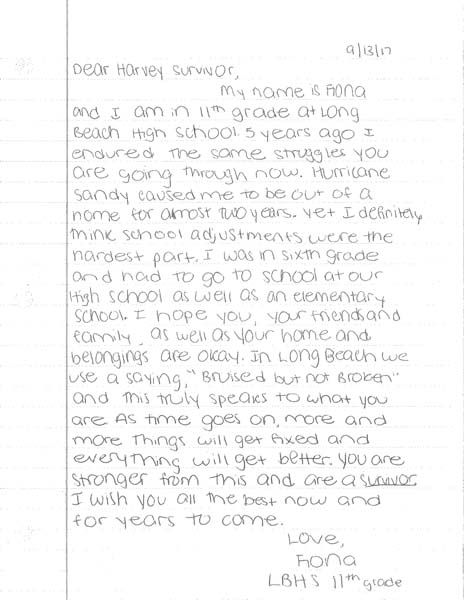 9/13/17
Dear Harvey survivor,
My name is Fiona
and I am in 11th grade at Long
Beach High School. 5 years ago I
endured the same struggles you
are going through now. Hurricane
Sandy caused me to be out of a
home for almost two years. Yet I definitely
think school adjustments were the
hardest part. I was in sixth grade
and had to go to school at our
High school as well as an elementary
school. I hope you, your friends and
family, as well as your home and
belongings are okay. In Long Beach we
use a saying, "Bruised but not Broken"
and this truly speaks to what you
are. As time goes on, more and
more things will get fixed and
everything will get better. You are
stronger from this and are a survivor.
I wish you all the best now and
for years to come.
Love,
Fiona
LBHS 11th grade